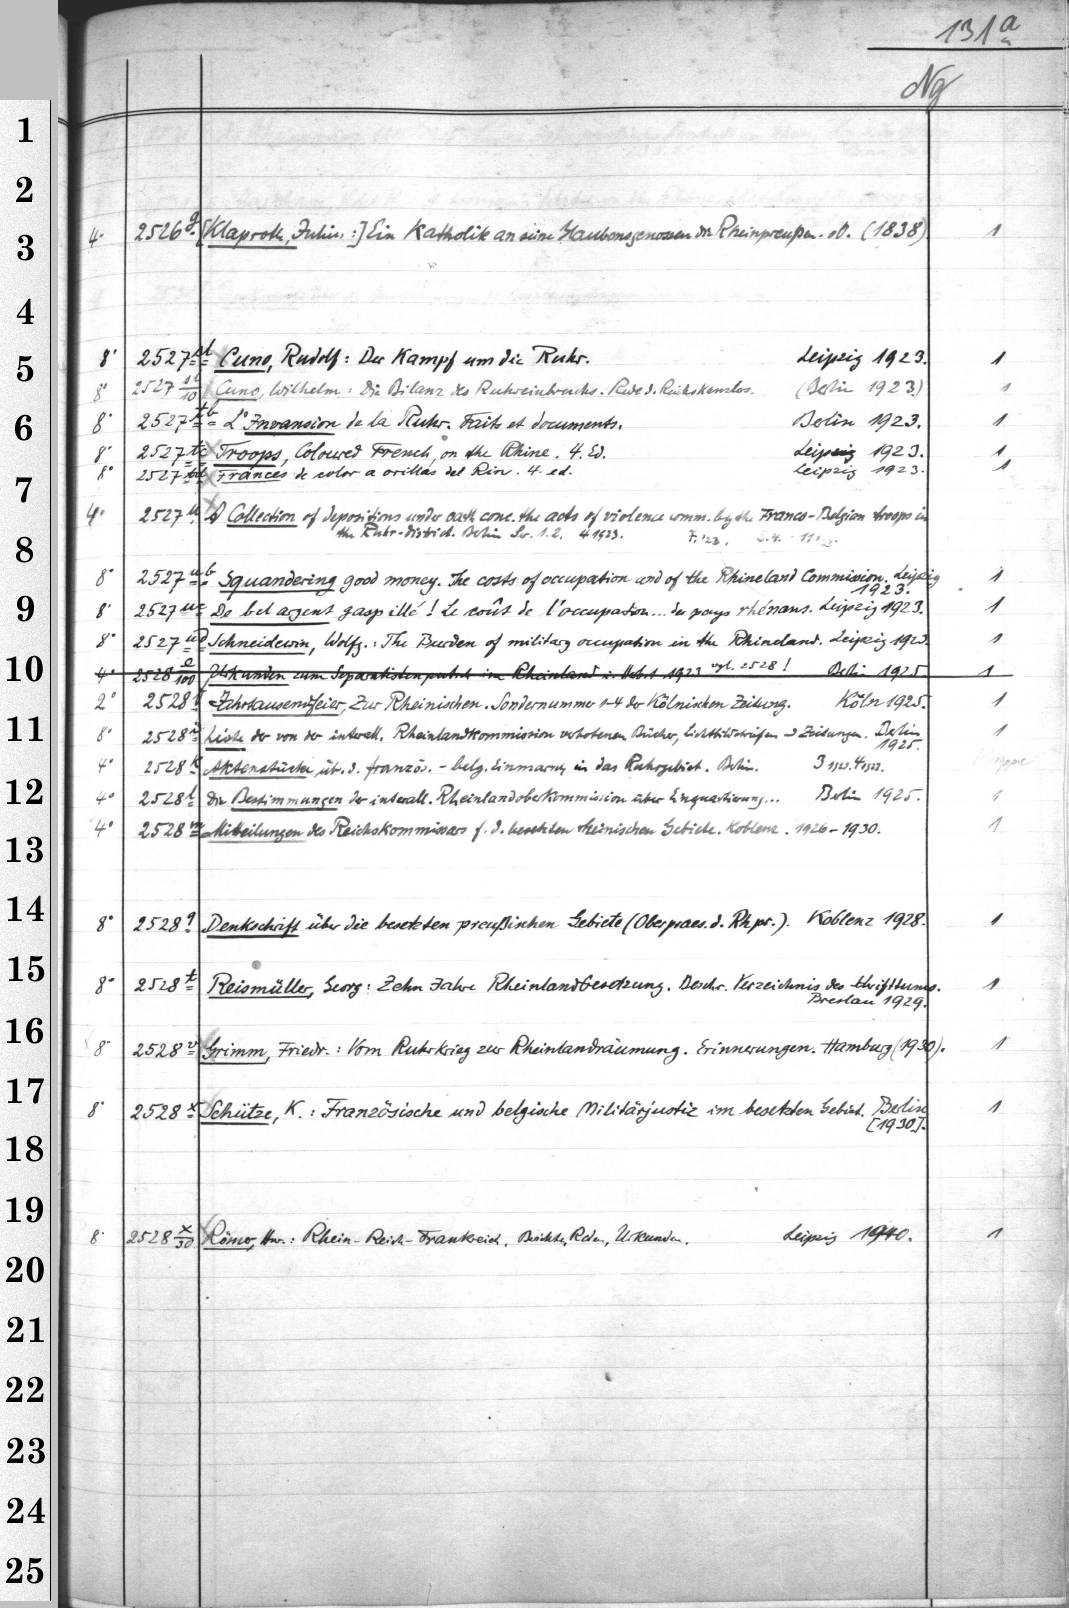 131a
Ng
4° 2526g. [Klaproth, Julius:] Ein Katholik an seine Glaubensgenossen in Rheinpreußen. oO. (1838) 1
8° 2527 Cuno, Rudolf: Der Kampf um die Ruhr. Leipzig 1923. 1
8° 2527 Cuno, Wilhelm: Die Bilanz des Ruhreinbruchs. Rede d. Reichskanzlers. (Berlin 1923) 1
8° 2527tb L'Invansion de la Ruhr. Faits et documents. Berlin 1923. 1
8° 2527tc Troops, Coloured French, on the Rhine. 4. Ed. Leipzig 1923. 1
8° 2527td Frances de color a orillas del Rin. 4. ed. Leipzig 1923. 1
4° 2527u A Collection of depositions under oath conc. the acts of violence comm. by the Franco-Belgian troops in
the Ruhr-district. Berlin Sr. 1.2. 4 1923.
8° 2527ub Squandering good money. The costs of occupation and of the Rhineland Commission. Leipzig
1923. 1
8° 2527uc De bel argent gaspillé! Le coût de l'occupation... des pays rhénans. Leipzig 1923. 1
8° 2527ud Schneidewin, Wolfg.: The Burden of military occupation in the Rhineland. Leipzig 1923. 1
4° 2528 e/100 Urkunden zum Separatistenputsch im Rheinland im Herbst 1923 vgl. 2528! Berlin 1925 1
2° 2528 Jahrtausendfeier, Zur Rheinischen. Sondernummer 1-4 der Kölnischen Zeitung. Köln 1925. 1
8° 2528i Liste der von der interall. Rheinlandkommission verbotenen Bücher, Lichtbildstreifen u Zeitungen. Berlin
1925. 1
4° 2528k Aktenstücke üb. d. französ.-belg. Einmarsch in das Ruhrgebiet. Berlin. 3 1923. 4 1923.
4° 2528l Die Bestimmungen der interall. Rheinlandoberkommission über Einquartierung... Berlin 1925. 1
4° 2528m Mitteilungen des Reichskommissars f. d. besetzten rheinischen Gebiete. Koblenz. 1926-1930. 1
8° 2528q Denkschrift über die besetzten preußischen Gebiete (Oberpraes. d. Rhpr.). Koblenz 1928. 1
8° 2528t Reismüller, Georg: Zehn Jahre Rheinlandbesetzung. Beschr. Verzeichnis des Schrifttums.
Breslau 1929. 1
8° 2528v Grimm, Friedr.: Vom Ruhrkrieg zur Rheinlandräumung. Erinnerungen. Hamburg (1930). 1
8° 2528x Schütze, K.: Französische und belgische Militärjustiz im besetzten Gebiet. Berlin
[1930]. 1
8° 2528 x/30 Römer, Hnr.: Rhein-Reich-Frankreich. Berichte, Reden, Urkunden. Leipzig 1940. 1
1
2
3
4
5
6
7
8
9
10
11
12
13
14
15
16
17
18
19
20
21
22
23
24
25